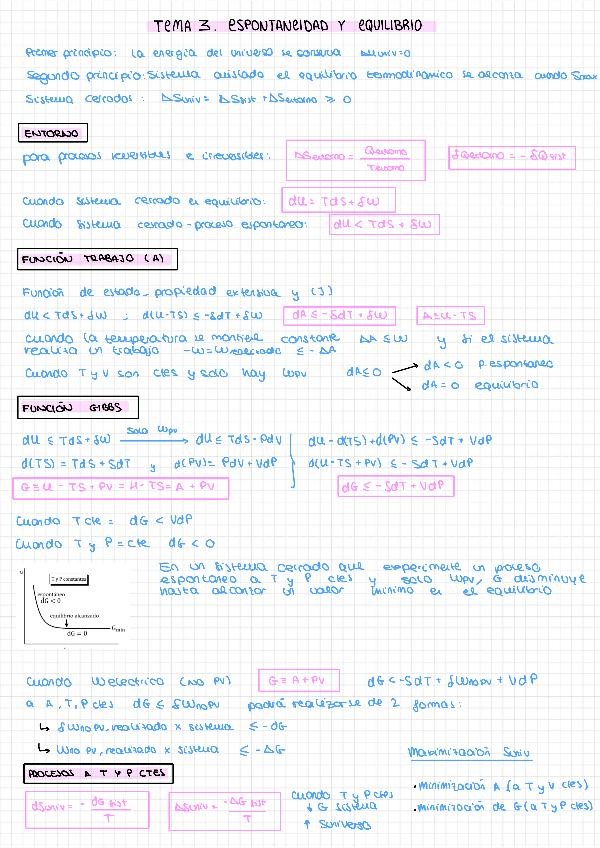 TEMA 3. ESPONTANEIDAD Y EQUILIBRIO
Primer principio: La energía del universo se conserva ΔUuniv=0
Segundo principio: Sistema aislado el equilibrio termodinámico se alcanza cuando Smax
Sistema cerrados : ΔSuniv= ΔSsist +ΔSentorno ≥ 0
ENTORNO
para procesos reversibles e irreversibles: ΔSentorno = Qentorno / Tentorno δQentorno = - δQsist
Cuando sistema cerrado en equilibrio: dU = TdS + δW
Cuando sistema cerrado - proceso espontáneo: dU < TdS + δW
FUNCIÓN TRABAJO (A)
Función de estado, propiedad extensiva y (J)
dU < TdS + δW ; d(U-TS) ≤ -SdT + δW dA ≤ -SdT + δW A≡U-TS
Cuando la temperatura se mantiene constante ΔA ≤ W y si el sistema
realiza un trabajo -W=Wrealizado ≤ -ΔA
Cuando T y V son ctes y solo hay Wpv dA≤0 dA < 0 P. espontaneo
dA = 0 equilibrio
FUNCIÓN GIBBS
dU ≤ TdS + δW solo Wpv dU ≤ TdS - PdV dU - d(TS) + d(PV) ≤ -SdT + VdP
d(TS) = TdS + SdT y d(PV)= PdV + VdP d(U - TS + PV) ≤ -SdT + VdP
G ≡ U - TS + PV = H - TS = A + PV dG ≤ -SdT + VdP
Cuando T cte = dG < VdP
Cuando T y P = cte dG < 0
G
T y P constantes
espontáneo
dG < 0
equilibrio alcanzado
dG = 0
Gmín
En un sistema cerrado que experimente un proceso
espontáneo a T y P ctes y solo Wpv, G disminuye
hasta alcanzar un valor mínimo en el equilibrio
Cuando Welectrico (NO PV) G ≡ A + PV dG < -SdT + δWnopv + VdP
a A, T, P ctes dG ≤ δWnopv podrá realizarse de 2 formas:
↳ δWno pv, realizado x sistema ≤ -dG
↳ Wno pv, realizado x sistema ≤ -ΔG
PROCESOS A T Y P CTES
dSuniv = - dG sist / T ΔSuniv = -ΔG sist / T
Cuando T y P ctes
↓ G sistema
↑ Suniverso
Maximización Suniv
• minimización A (a T y V ctes)
• minimización de G (a T y P ctes)